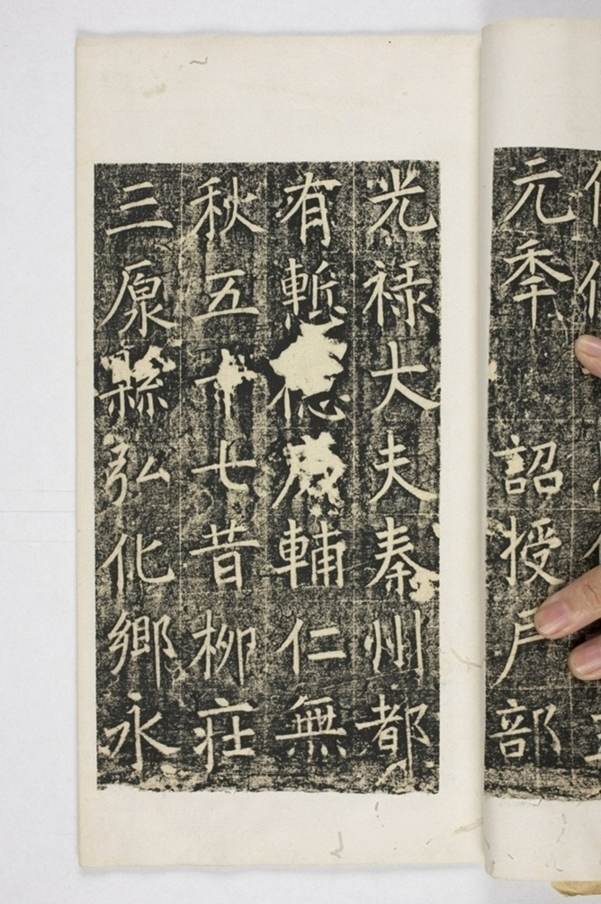 元秊 詔授戶部
光祿大夫秦州都
有慙德輔仁無
秋五十七昔柳莊
三原縣弘化鄉永